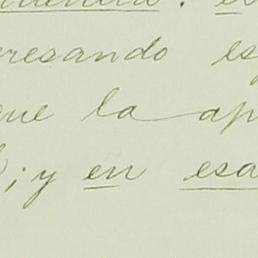 resando es
que la ap
; y en esa